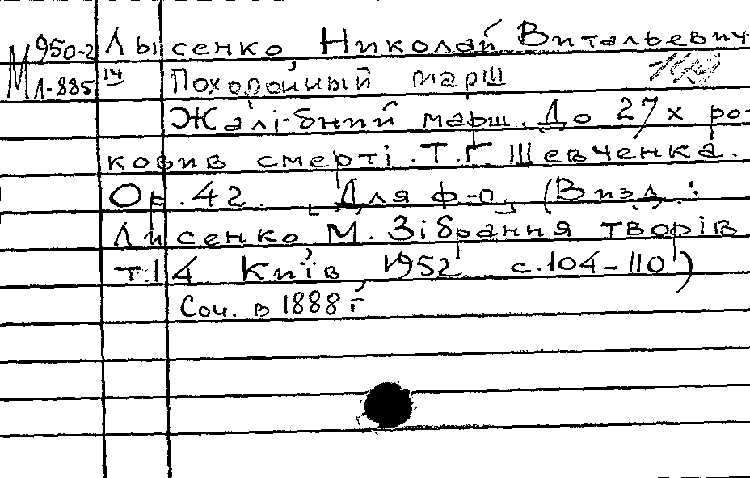 М 950-2 Лысенко, Николай Витальевич
Л-885 14 Похоронный марш
Жалібний марш. До 27х ро-
ковив смерті. Т.Г. Шевченка.
Ор. 42. [Для ф-о] (В изд.:
Лисенко, М. Зібрання творів
т.14 Київ, 1952, с.104-110)
Соч. в 1888 г.